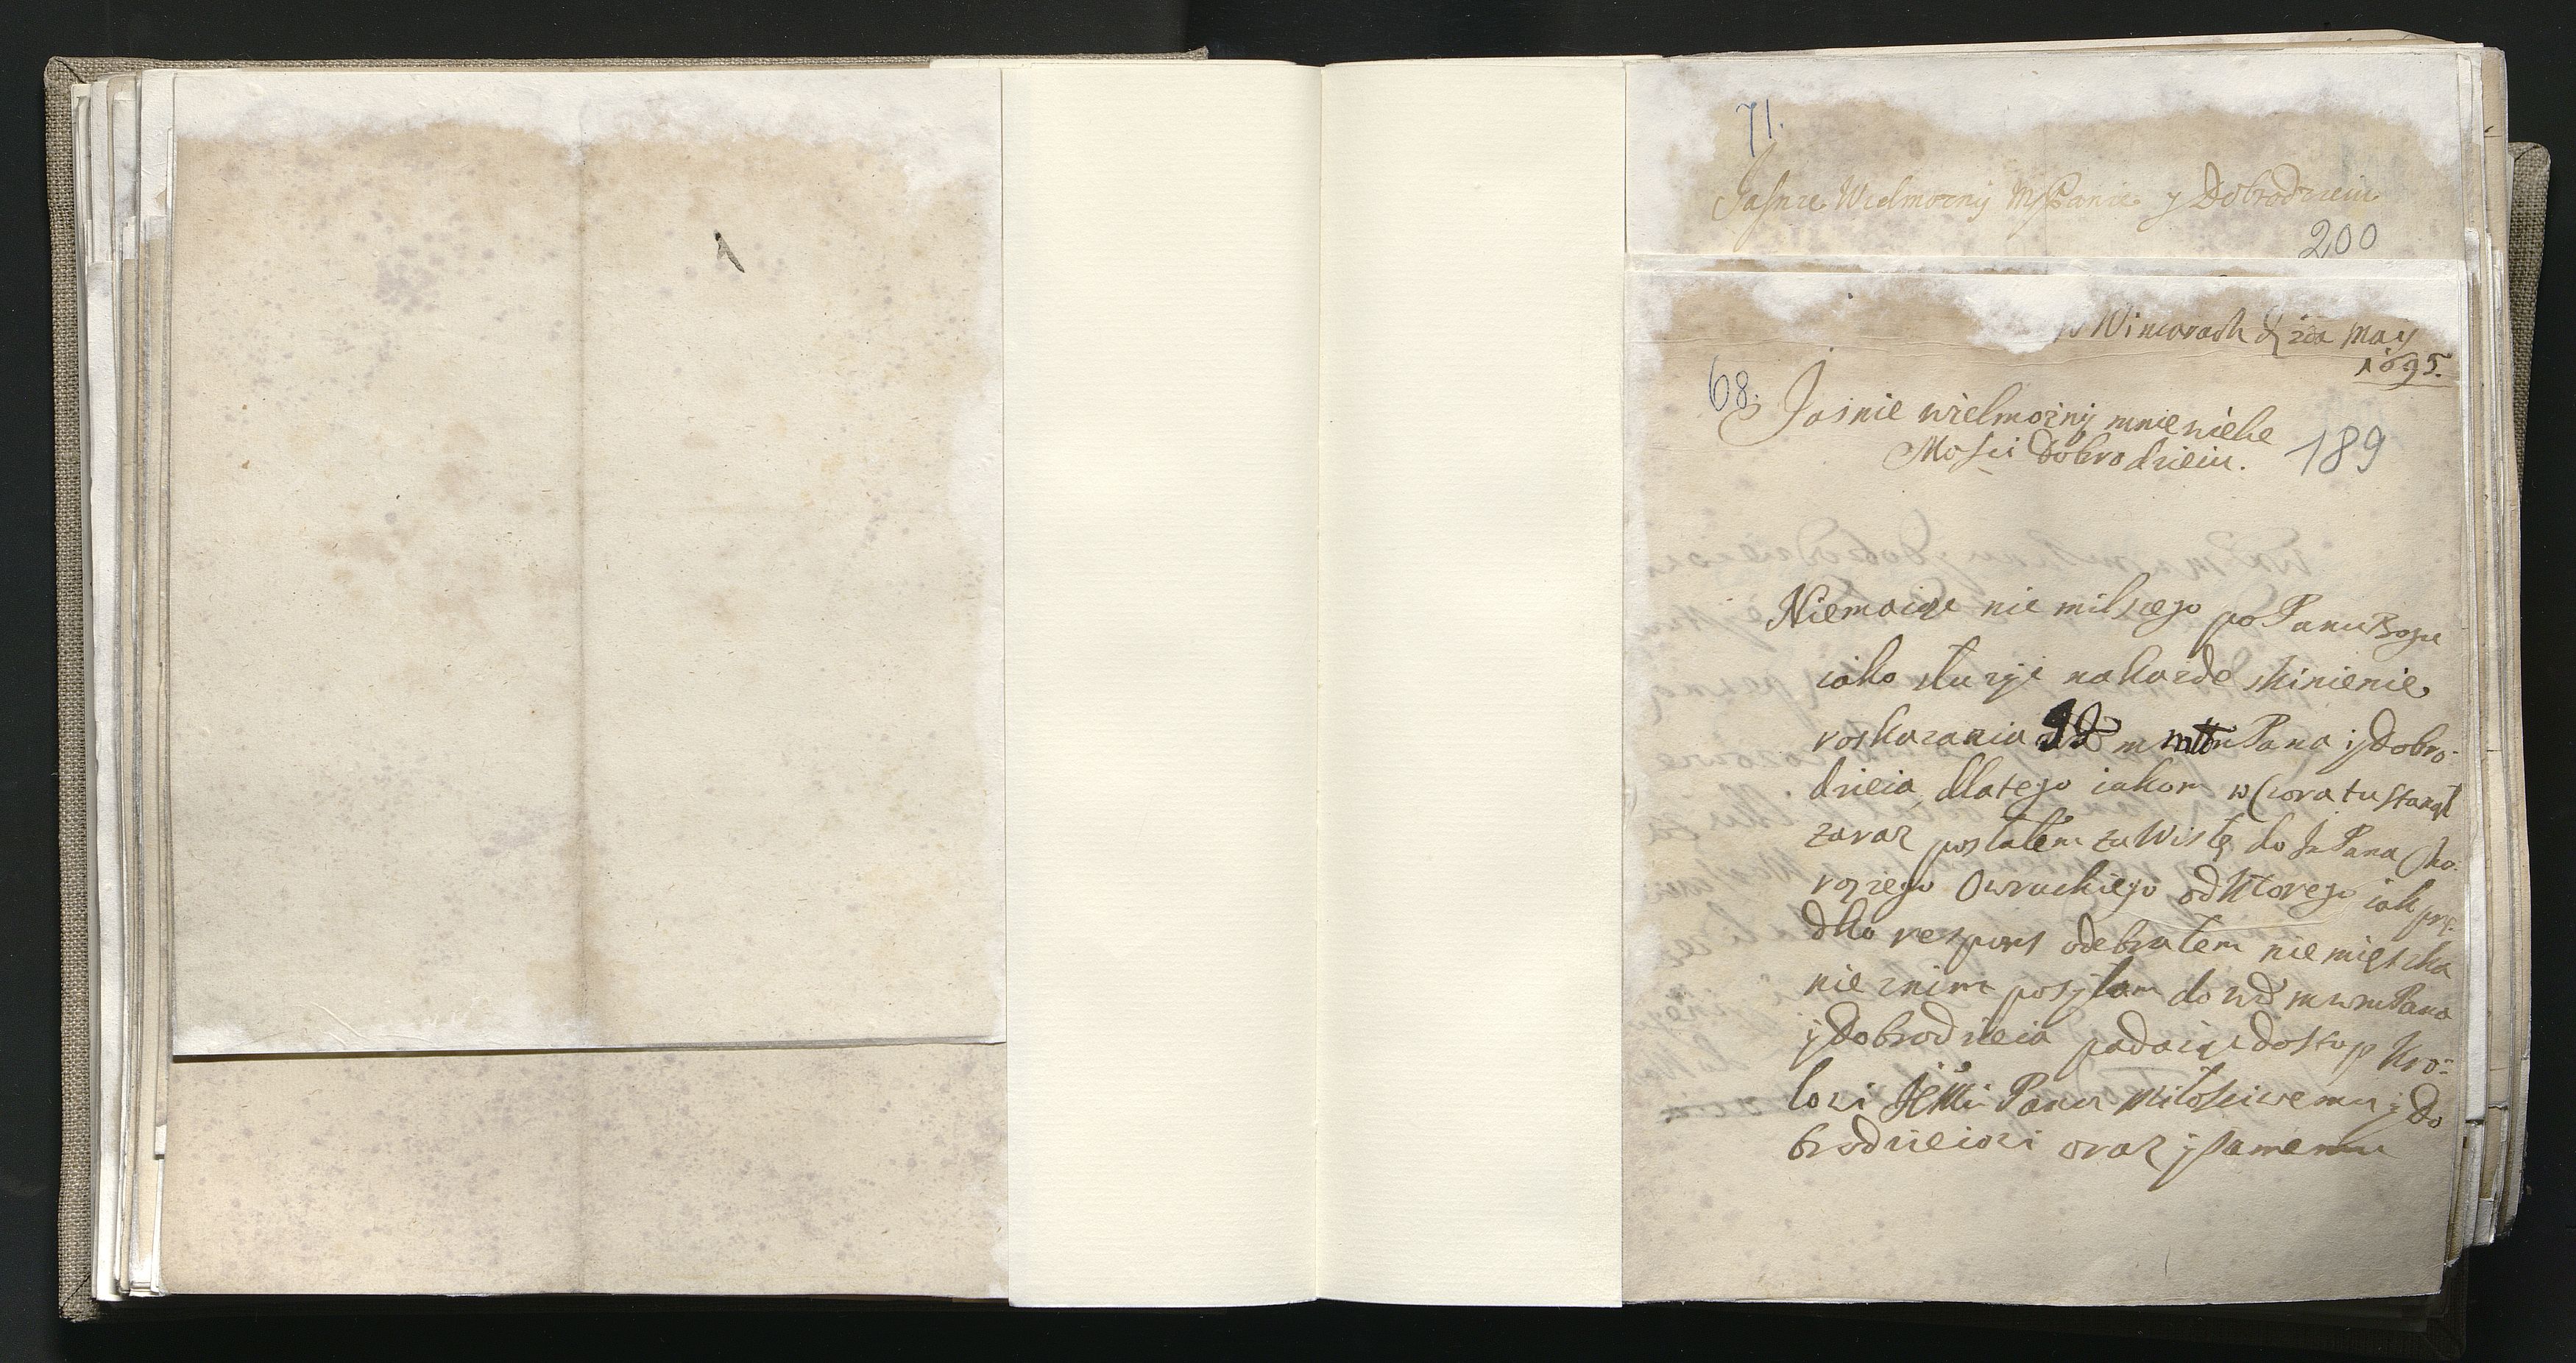 71.
Jasnie Wielmozny Mſ Panie y Dobrodzieiu
200
w Winiarach d 2da May
1695.
68. Jasnie wielmozny mnie wielce
Mosci Dobrodzieiu. 189
Niemaiąc nic milszego po Panu Bogu
iako służyc na kozde skinienie
roskazania Pana y Dobro-
dzieia, dlatego iakom wczora tu stanął
zaraz posłałem za Wisłę do Je Pana Cho-
rązego Owruckiego od ktorego iak prę-
dko respons odebrałem nie mięszka
nie znim posyłam do wd mwm Pana
y Dobrodzieia padaiąc do stop Kro-
lowi Panu Miłosciwemu y Do
brodzieiowi oraz y samemu